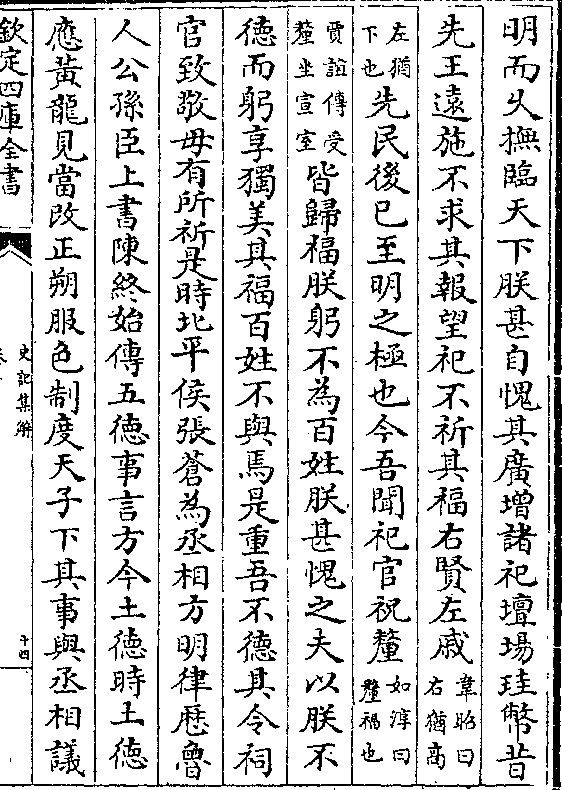 明而久撫臨天下朕甚自愧其廣增諸祀壇場珪幣昔
先王遠施不求其報望祀不祈其福右賢左戚韋昭曰右猶高
左猶下也先民後己至明之極也今吾聞祀官祝釐如淳曰釐福也
賈誼傳受釐坐宣室皆歸福朕躬不為百姓朕甚愧之夫以朕不
德而躬享獨美其福百姓不與焉是重吾不德其令祠
官致敬毋有所祈是時北平侯張蒼為丞相方明律歷魯
人公孫臣上書陳終始傳五德事言方今土德時土德
應黃龍見當改正朔服色制度天子下其事與丞相議
欽定四庫全書
史記集解
十四